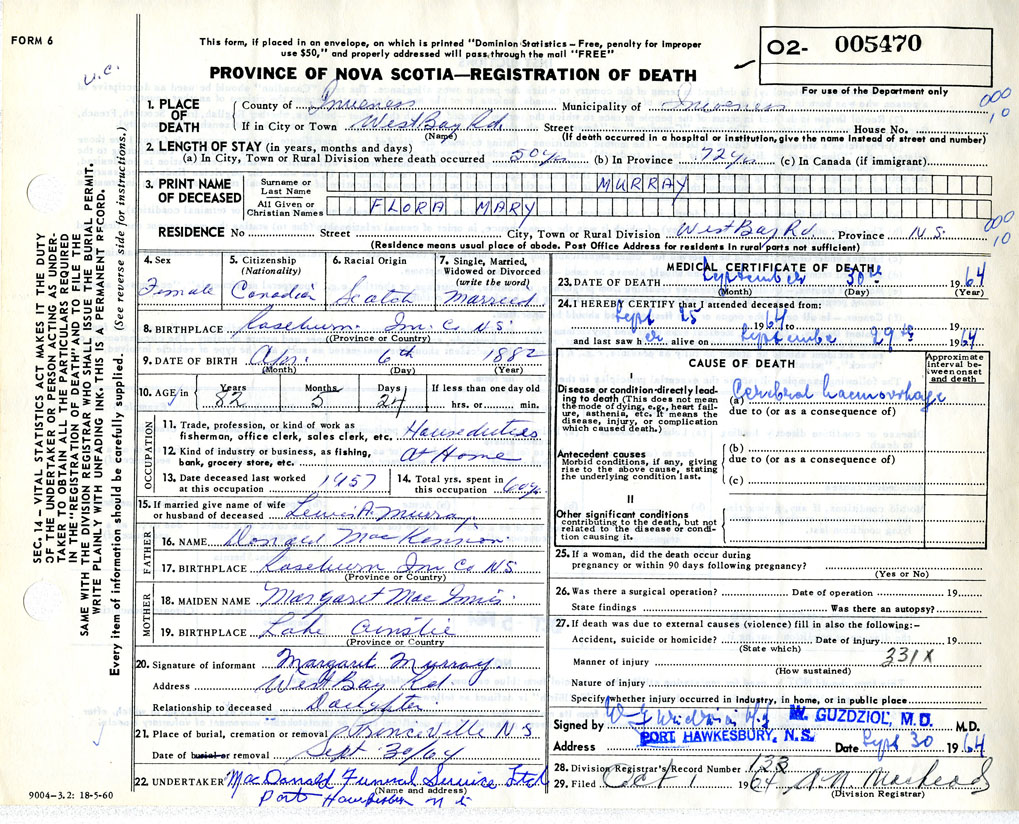 FORM 6
This form, if placed in an envelope, on which is printed "Dominion Statistics – Free, penalty for improper
use $50," and properly addressed will pass through the mail "FREE"
O2- 005470
For use of the Department only
PROVINCE OF NOVA SCOTIA—REGISTRATION OF DEATH
U.C.
SEC. 14 – VITAL STATISTICS ACT MAKES IT THE DUTY
OF THE UNDERTAKER OR PERSON ACTING AS UNDER-
TAKER TO OBTAIN ALL THE PARTICULARS REQUIRED
IN THE "REGISTRATION OF DEATH" AND TO FILE THE
SAME WITH THE DIVISION REGISTRAR WHO SHALL ISSUE THE BURIAL PERMIT.
WRITE PLAINLY WITH UNFADING INK–THIS IS A PERMANENT RECORD.
Every item of information should be carefully supplied. (See reverse side for instructions.)
1. PLACE OF DEATH
County of Inverness Municipality of Inverness
000
10
If in City or Town West Bay Rd. Street House No.
(Name) (If death occurred in a hospital or institution, give the name instead of street and number)
2. LENGTH OF STAY (in years, months and days)
(a) In City, Town or Rural Division where death occurred 50 yrs (b) In Province 72 yrs. (c) In Canada (if immigrant)
3. PRINT NAME OF DECEASED
Surname or Last Name MURRAY
All Given or Christian Names FLORA MARY
000
10
RESIDENCE No Street City, Town or Rural Division West Bay Rd Province N.S.
(Residence means usual place of abode. Post Office Address for residents in rural parts not sufficient)
4. Sex
Female
5. Citizenship
(Nationality)
Canadian
6. Racial Origin
Scotch
7. Single, Married,
Widowed or Divorced
(write the word)
Married
8. BIRTHPLACE Roseburn. In. Co N.S.
(Province or Country)
9. DATE OF BIRTH Apr. 6th 1882
(Month) (Day) (Year)
10. AGE in Years 82 Months 5 Days 24 If less than one day old
hrs. or min.
OCCUPATION
11. Trade, profession, or kind of work as
fisherman, office clerk, sales clerk, etc. House duties
12. Kind of industry or business, as fishing,
bank, grocery store, etc. At Home
13. Date deceased last worked
at this occupation 1957
14. Total yrs. spent in
this occupation 60 yrs.
15. If married give name of wife
or husband of deceased Lewis A. Murray
FATHER
16. NAME Donald MacKinnon
17. BIRTHPLACE Roseburn In Co N.S.
(Province or Country)
MOTHER
18. MAIDEN NAME Margaret MacInnis.
19. BIRTHPLACE Lake Ainslie
(Province or Country)
20. Signature of informant Margaret Murray
Address West Bay Rd.
Relationship to deceased Daughter
21. Place of burial, cremation or removal Princeville N S
Date of burial or removal Sept 30/64
22. UNDERTAKER MacDonald Funeral Service Ltd
(Name and address)
Port Hawkesbury N S
9004–3.2: 18-5-60
MEDICAL CERTIFICATE OF DEATH
23. DATE OF DEATH September 30th 1964
(Month) (Day) (Year)
24. I HEREBY CERTIFY that I attended deceased from:
Sept 25 1964 to
and last saw her alive on September 29th 1964
CAUSE OF DEATH
Approximate
interval between
onset
and death
I
Disease or condition directly lead-
ing to death (This does not mean
the mode of dying, e.g., heart fail-
ure, asthenia, etc. It means the
disease, injury, or complication
which caused death.)
(a) Cerebral haemorrhage
due to (or as a consequence of)
Antecedent causes
Morbid conditions, if any, giving
rise to the above cause, stating
the underlying condition last.
(b)
due to (or as a consequence of)
(c)
II
Other significant conditions
contributing to the death, but not
related to the disease or condi-
tion causing it.
25. If a woman, did the death occur during
pregnancy or within 90 days following pregnancy?
(Yes or No)
26. Was there a surgical operation? Date of operation 19
State findings Was there an autopsy?
27. If death was due to external causes (violence) fill in also the following:–
Accident, suicide or homicide? Date of injury 19
(State which)
331X
Manner of injury
(How sustained)
Nature of injury
Specify whether injury occurred in industry, in home, or in public place
Signed by W. GUZDZIOL, M.D. M.D.
PORT HAWKESBURY, N.S.
Address Date Sept 30 1964
28. Division Registrar's Record Number 133
29. Filed Oct 1 1964 A.N. MacLeod
(Division Registrar)